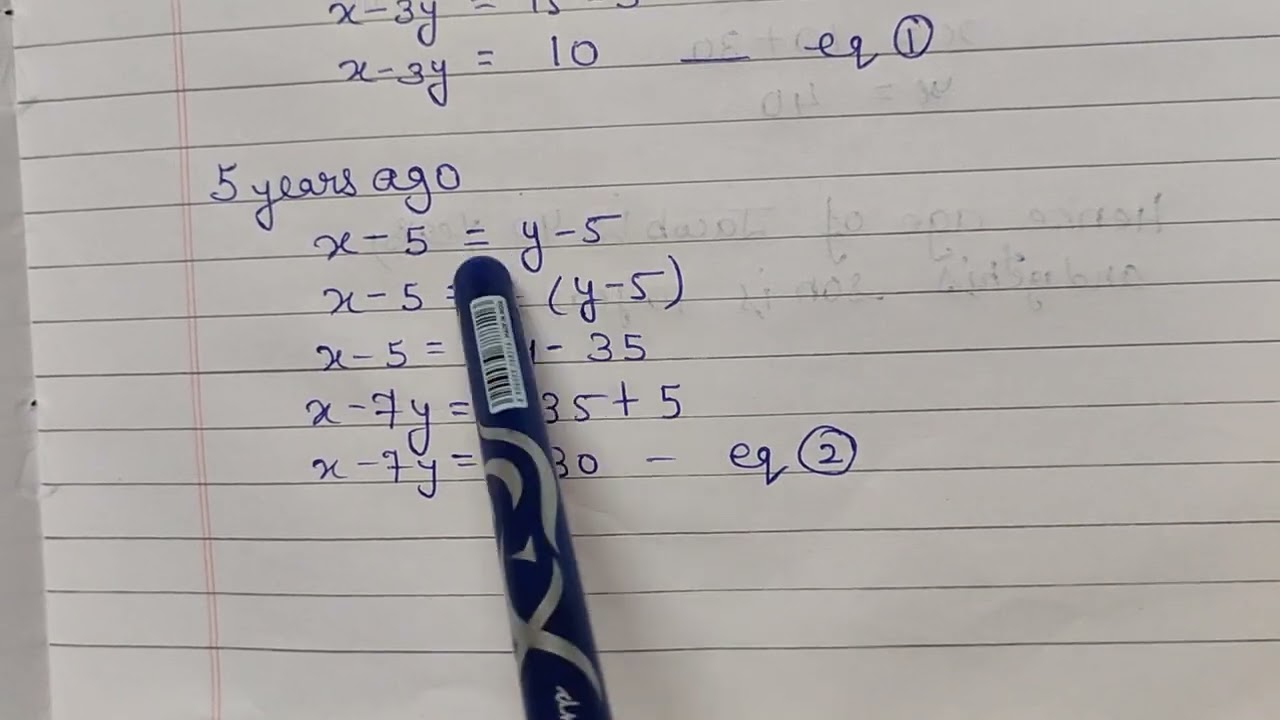 x-3y = 15-5
x-3y = 10 — eq ①
5 years ago
x-5 = y-5
x-5 = (y-5)
x-5 = - 35
x-7y = 35+5
x-7y = 30 - eq ②